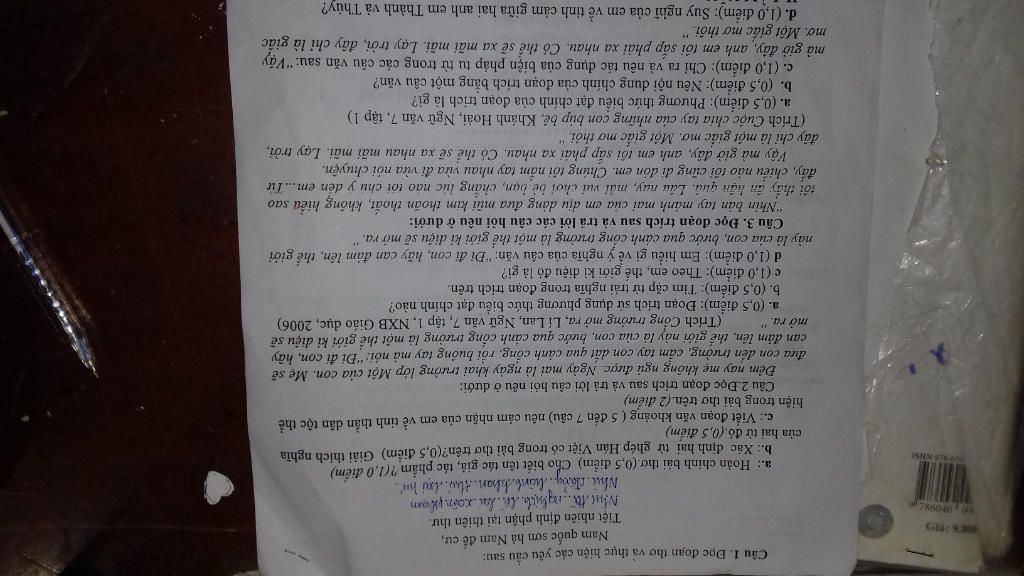 Câu 1. Đọc đoạn thơ và thực hiện các yêu cầu sau:
Nam quốc sơn hà Nam đế cư,
Tiệt nhiên định phận tại thiên thư.
Như
Như
a.: Hoàn chỉnh bài thơ (0,5 điểm) Cho biết tên tác giả, tác phẩm ?(1,0 điểm)
b.: Xác định hai từ ghép Hán Việt có trong bài thơ trên?(0,5 điểm) Giải thích nghĩa
của hai từ đó.(0,5 điểm)
c.: Viết đoạn văn khoảng ( 5 đến 7 câu) nêu cảm nhận của em về tinh thần dân tộc thể
hiện trong bài thơ trên.(2 điểm)
Câu 2.Đọc đoạn trích sau và trả lời các câu hỏi nêu ở dưới:
Đêm nay mẹ không ngủ được. Ngày mai là ngày khai trường lớp Một của con. Mẹ sẽ
đưa con đến trường, cầm tay con dắt qua cánh cổng, rồi buông tay mà nói: "Đi đi con, hãy
can đảm lên, thế giới này là của con, bước qua cánh cổng trường là một thế giới kì diệu sẽ
mở ra." (Trích Cổng trường mở ra, Lí Lan, Ngữ văn 7, tập 1, NXB Giáo dục, 2006)
a. (0,5 điểm): Đoạn trích sử dụng phương thức biểu đạt chính nào?
b. (0,5 điểm): Tìm cặp từ trái nghĩa trong đoạn trích trên.
c (1,0 điểm): Theo em, thế giới kì diệu đó là gì?
d (1,0 điểm): Em hiểu gì về ý nghĩa của câu văn: "Đi đi con, hãy can đảm lên, thế giới
này là của con, bước qua cánh cổng trường là một thế giới kì diệu sẽ mở ra."
Câu 3. Đọc đoạn trích sau và trả lời các câu hỏi nêu ở dưới:
"Nhìn bàn tay mảnh mai của em dịu dàng đưa mũi kim thoăn thoắt, không hiểu sao
tôi thấy ân hận quá. Lâu nay, mải vui chơi bè bạn, chẳng lúc nào tôi chú ý đến em...Từ
đấy, chiều nào tôi cũng đi đón em. Chúng tôi nắm tay nhau vừa đi vừa nói chuyện.
Vậy mà giờ đây, anh em tôi sắp phải xa nhau. Có thể sẽ xa nhau mãi mãi. Lạy trời,
đây chỉ là một giấc mơ. Một giấc mơ thôi."
(Trích Cuộc chia tay của những con búp bê, Khánh Hoài, Ngữ văn 7, tập 1)
a. (0,5 điểm): Phương thức biểu đạt chính của đoạn trích là gì?
b. (0,5 điểm): Nêu nội dung chính của đoạn trích bằng một câu văn?
c. (1,0 điểm): Chỉ ra và nêu tác dụng của biện pháp tu từ trong các câu văn sau: "Vậy
mà giờ đây, anh em tôi sắp phải xa nhau. Có thể sẽ xa nhau mãi mãi. Lạy trời, đây chỉ là giấc
mơ. Một giấc mơ thôi."
d. (1,0 điểm): Suy nghĩ của em về tình cảm giữa hai anh em Thành và Thủy?
ISBN 978-604
9 786040 00
Giá: 9.800